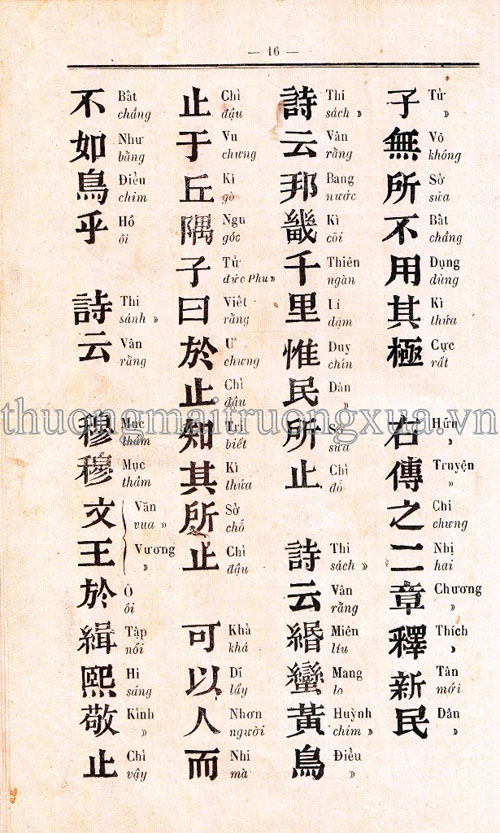 — 16 —
子無所不用其極 右傳之二章釋新民
Tử »
Vô không
Sở sửa
Bất chẳng
Dụng dùng
Kì thửa
Cực rất
Hữu »
Truyện »
Chi chưng
Nhị hai
Chương »
Thích »
Tân mới
Dân »
詩云邦畿千里惟民所止 詩云緡蠻黃鳥
Thi sách »
Vân rằng
Bang nước
Kì cõi
Thiên ngàn
Lí dặm
Duy chỉn
Dân »
Sở sửa
Chỉ đỗ
Thi sách »
Vân rằng
Miên líu
Mang lo
Huỳnh chim »
Điểu »
止于丘隅子曰於止知其所止 可以人而
Chỉ đậu
Vu chưng
Kì gò
Ngu góc
Tử đức Phu »
Viết rằng
Ư chưng
Chỉ đậu
Tri biết
Kì thửa
Sở chỗ
Chỉ đậu
Khả khá
Dĩ lấy
Nhơn người
Nhi mà
不如鳥乎 詩云 穆穆文王於緝熙敬止
Bất chẳng
Như bằng
Điểu chim
Hồ ôi
Thi sánh »
Vân rằng
Mục thẳm
Mục thẳm
Văn vua »
Vương »
Ô ôi
Tập nối
Hi sáng
Kính »
Chỉ vậy
thuongmaitruongxua.vn